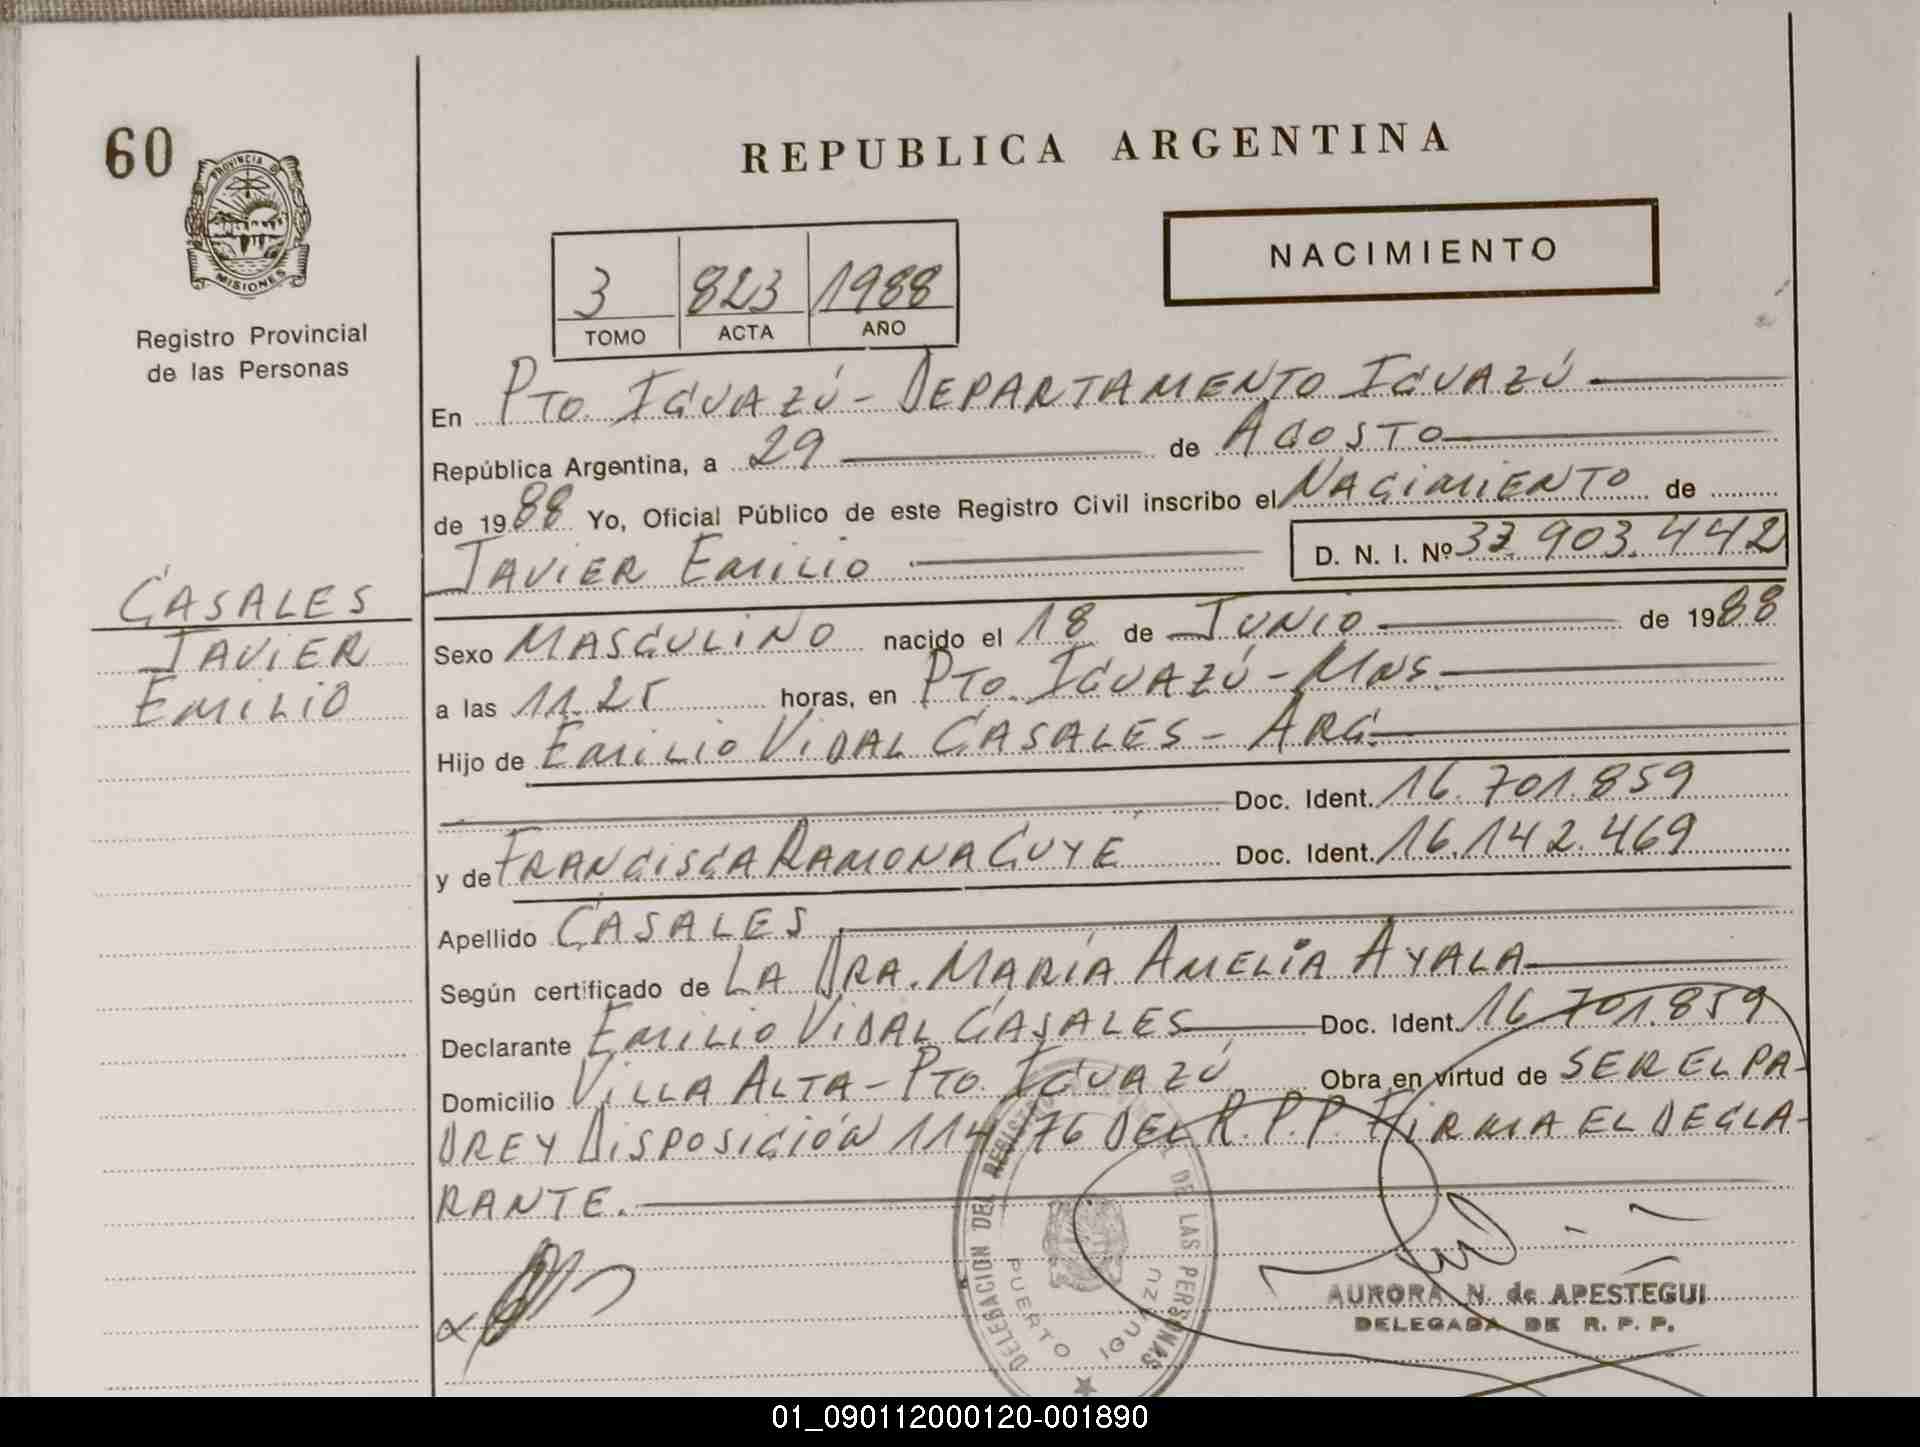 60
PROVINCIA DE
MISIONES
Registro Provincial
de las Personas
REPUBLICA ARGENTINA
NACIMIENTO
3 823 1988
TOMO ACTA AÑO
En PTO. IGUAZÚ - DEPARTAMENTO IGUAZÚ
República Argentina, a 29 de AGOSTO
de 1988 Yo, Oficial Público de este Registro Civil inscribo el NACIMIENTO de
JAVIER EMILIO D. N. I. Nº 33.903.442
CASALES
JAVIER
EMILIO
Sexo MASCULINO nacido el 18 de JUNIO de 1988
a las 11.25 horas, en PTO. IGUAZÚ - MNS.
Hijo de EMILIO VIDAL CASALES - ARG.
Doc. Ident. 16.701.859
y de FRANCISCA RAMONA CUYE Doc. Ident. 16.142.469
Apellido CASALES
Según certificado de LA DRA. MARÍA AMELIA AYALA
Declarante EMILIO VIDAL CASALES Doc. Ident. 16.701.859
Domicilio VILLA ALTA - PTO. IGUAZÚ Obra en virtud de SER EL PA-
DRE Y DISPOSICIÓN 114/76 DEL R.P.P. FIRMA EL DECLA-
RANTE.
DELEGACION DEL REGISTRO DE LAS PERSONAS
PUERTO IGUAZU
AURORA N. de APESTEGUI
DELEGADA DE R. P. P.
01_090112000120-001890